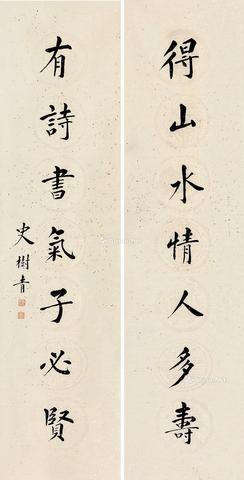 得山水情人多壽
有詩書氣子必賢
史樹青